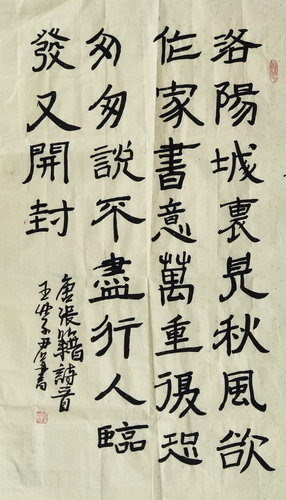 洛陽城裏見秋風欲
作家書意萬重復恐
匆匆說不盡行人臨
發又開封
唐張籍詩首
王
書